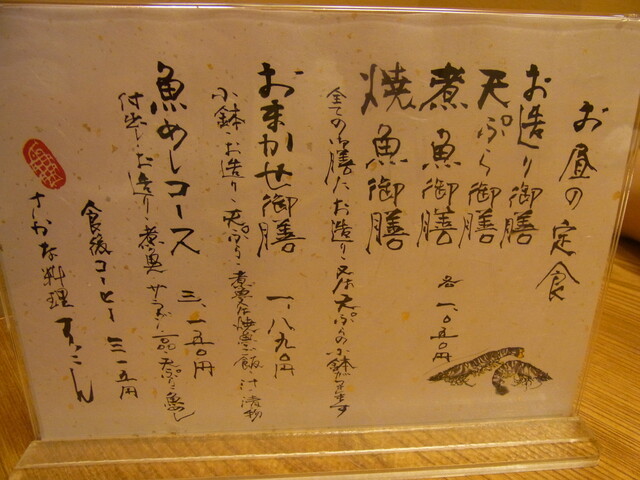 お昼の定食
お造り御膳
天ぷら御膳
煮魚御膳
焼魚御膳
各 一、〇五〇円
全ての御膳に、お造り、又は天ぷらの小鉢が付きます
おまかせ御膳 一、八九〇円
小鉢、お造り、天ぷら、煮魚又は焼魚、ご飯、汁、漬物
魚めしコース 三、一五〇円
付出し、お造り、煮魚、サラダ、一品、天ぷら、魚めし
食後コーヒー 三一五円
さかな料理